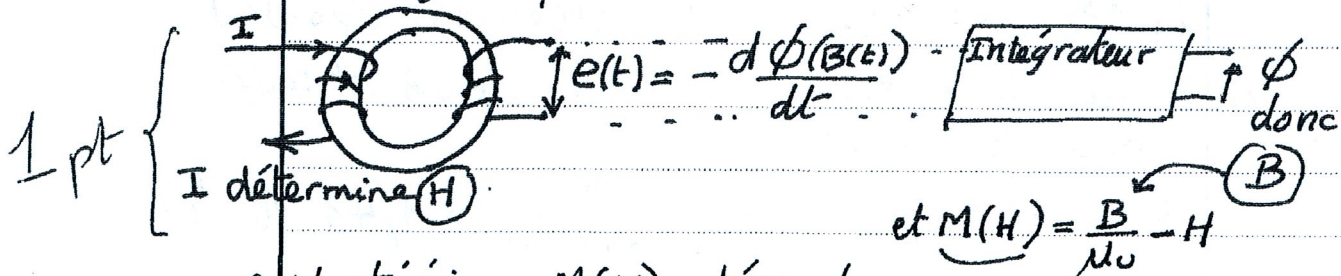 I
e(t) = - dϕ(B(t))/dt
Intégrateur
ϕ
donc
1 pt
I détermine H
B
et M(H) = B/μ₀ - H
M(H)